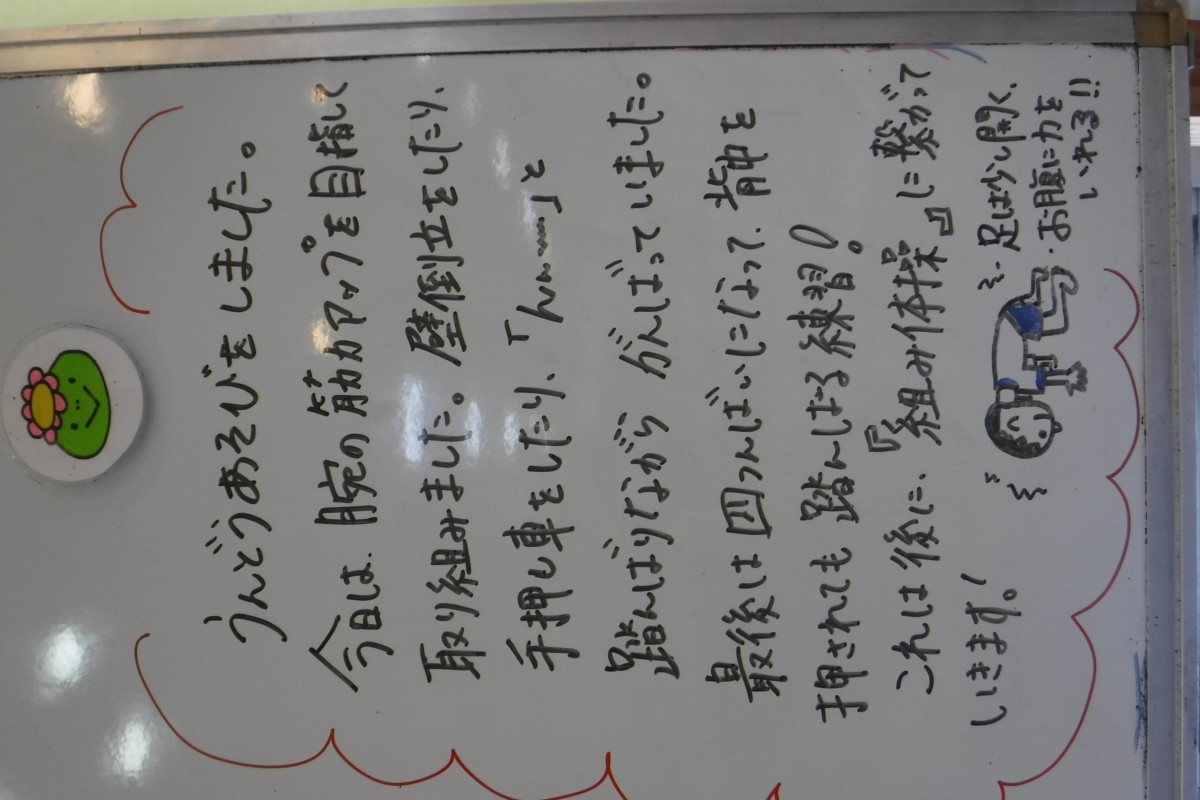 うんどうあそびをしました。
今日は、腕の筋力アップを目指して
取り組みました。壁倒立をしたり、
手押し車をしたり、「んん……」と
踏んばりながら がんばっていました。
最後は四つんばいになって、背中を
押されても踏んばる練習!
これは後に、『組み体操』に繋がって
いきます。!
・足は少し開く、
・お腹に力を
いれる!!